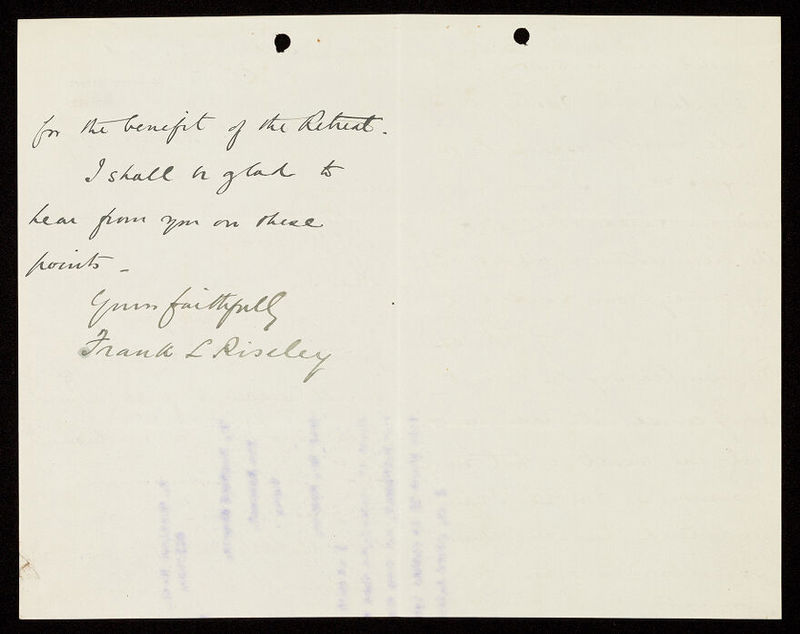 for the benefit of the Retreat.
I shall be glad to
hear from you on these
points -
Yours faithfully
Frank L Riseley